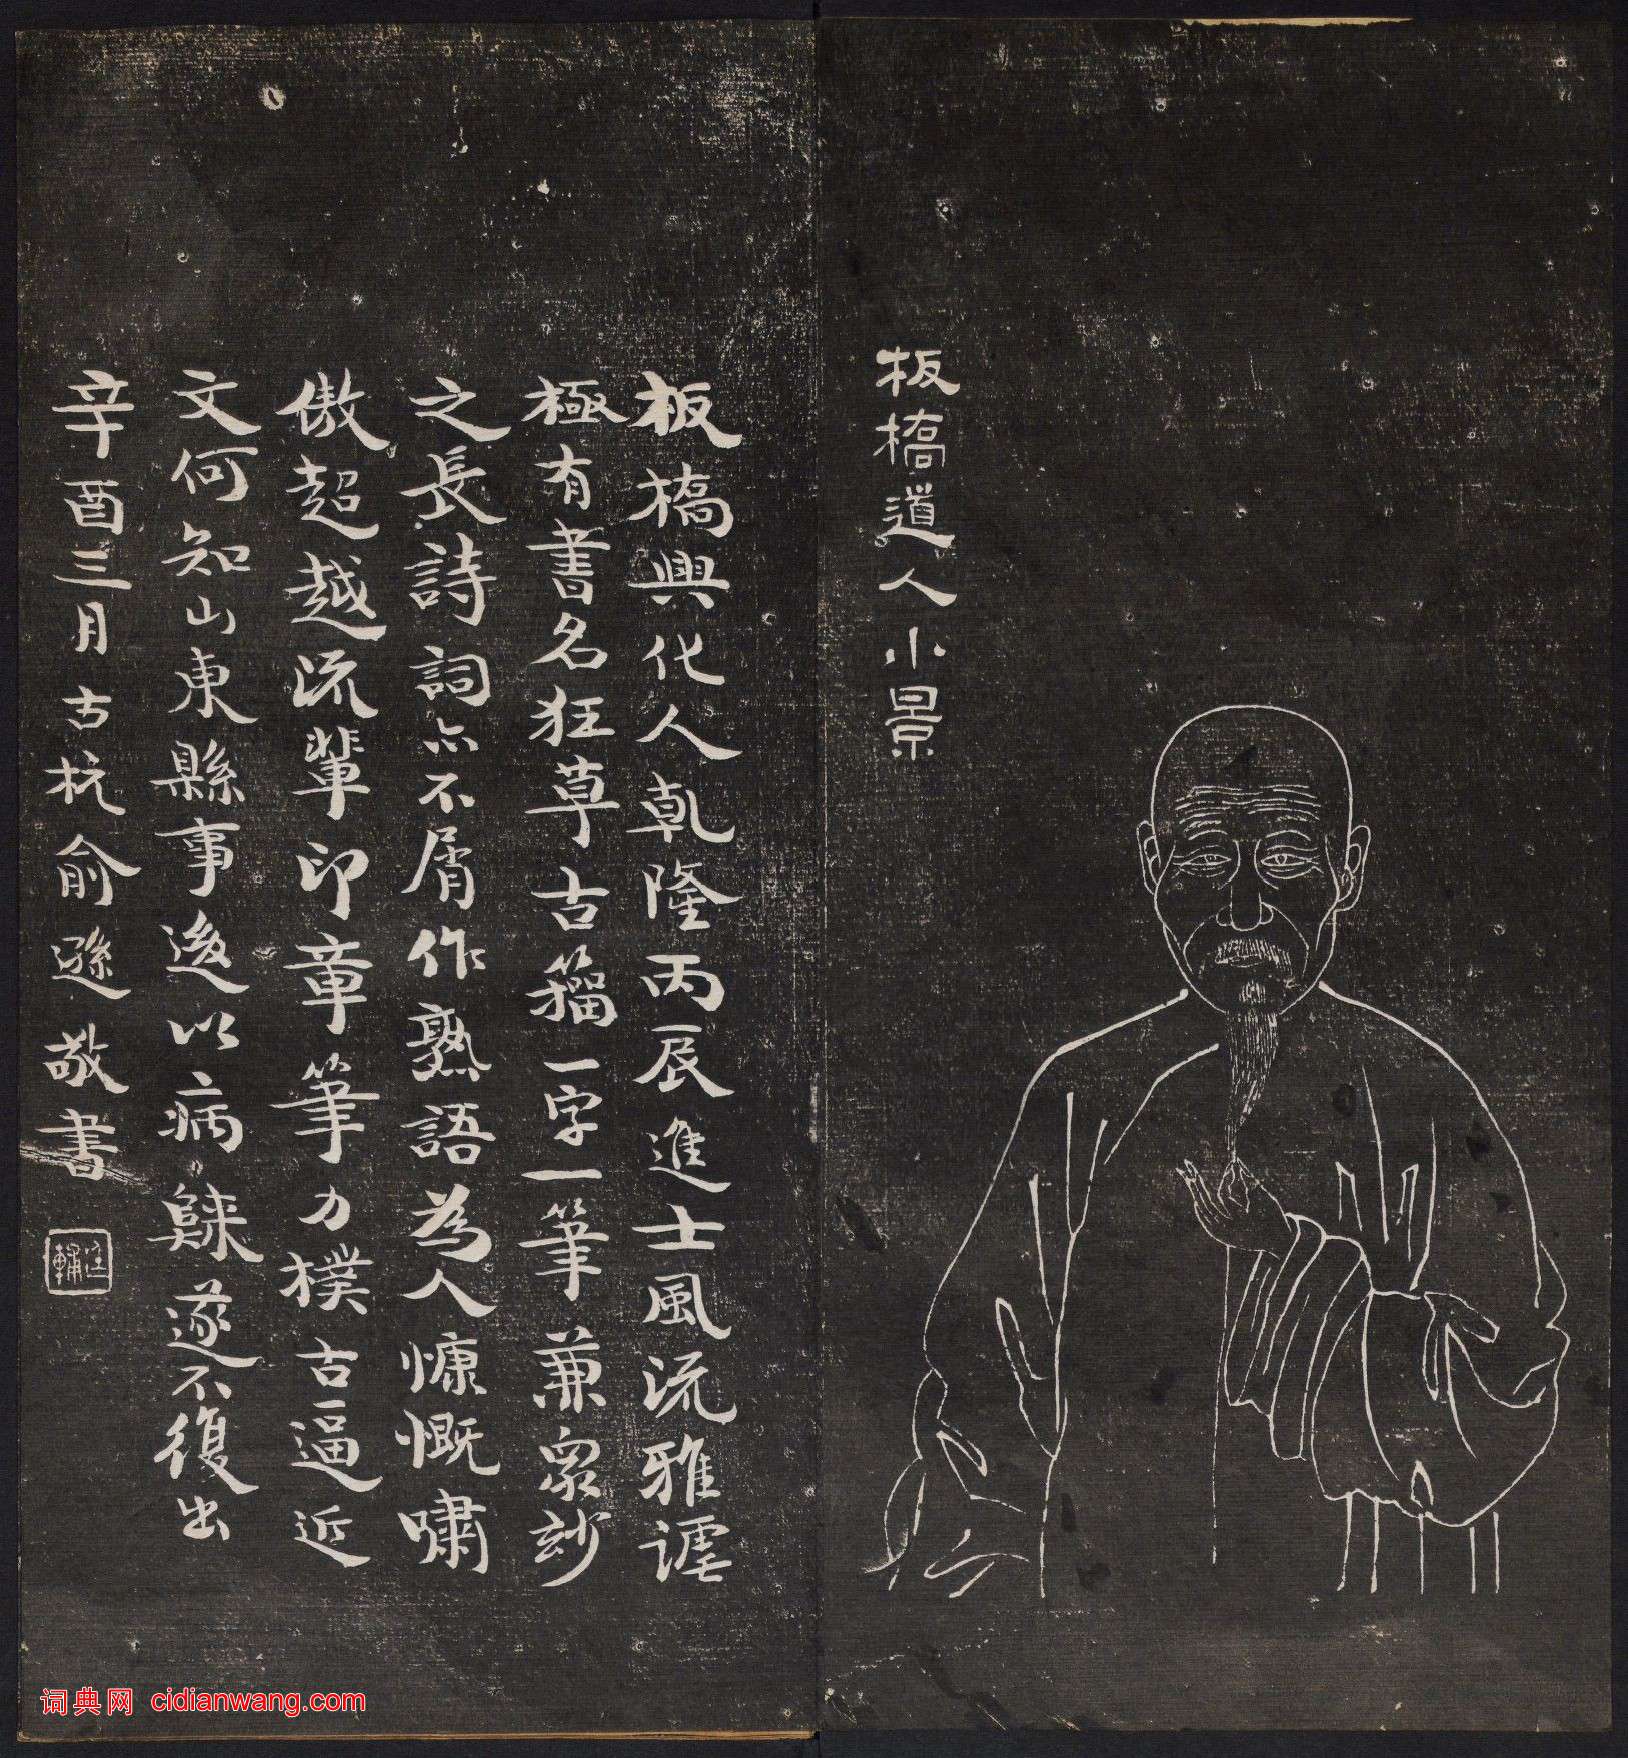 板橋道人小景
板橋興化人乾隆丙辰進士風流雅謔
極有書名狂草古籀一字一筆兼衆妙
之長詩詞亦不屑作熟語為人慷慨嘯
傲超越流輩印章筆力樸古逼近
文何知山東縣事後以病歸遂不復出
辛酉三月古杭俞遜敬書
詞典网 cidianwang.com